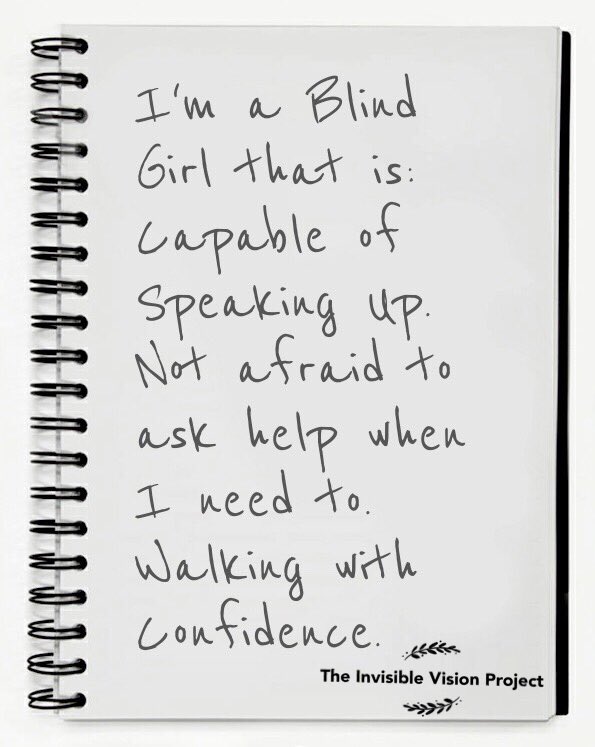 I'm a Blind
Girl that is:
Capable of
Speaking up.
Not afraid to
ask help when
I need to.
Walking with
Confidence.
The Invisible Vision Project